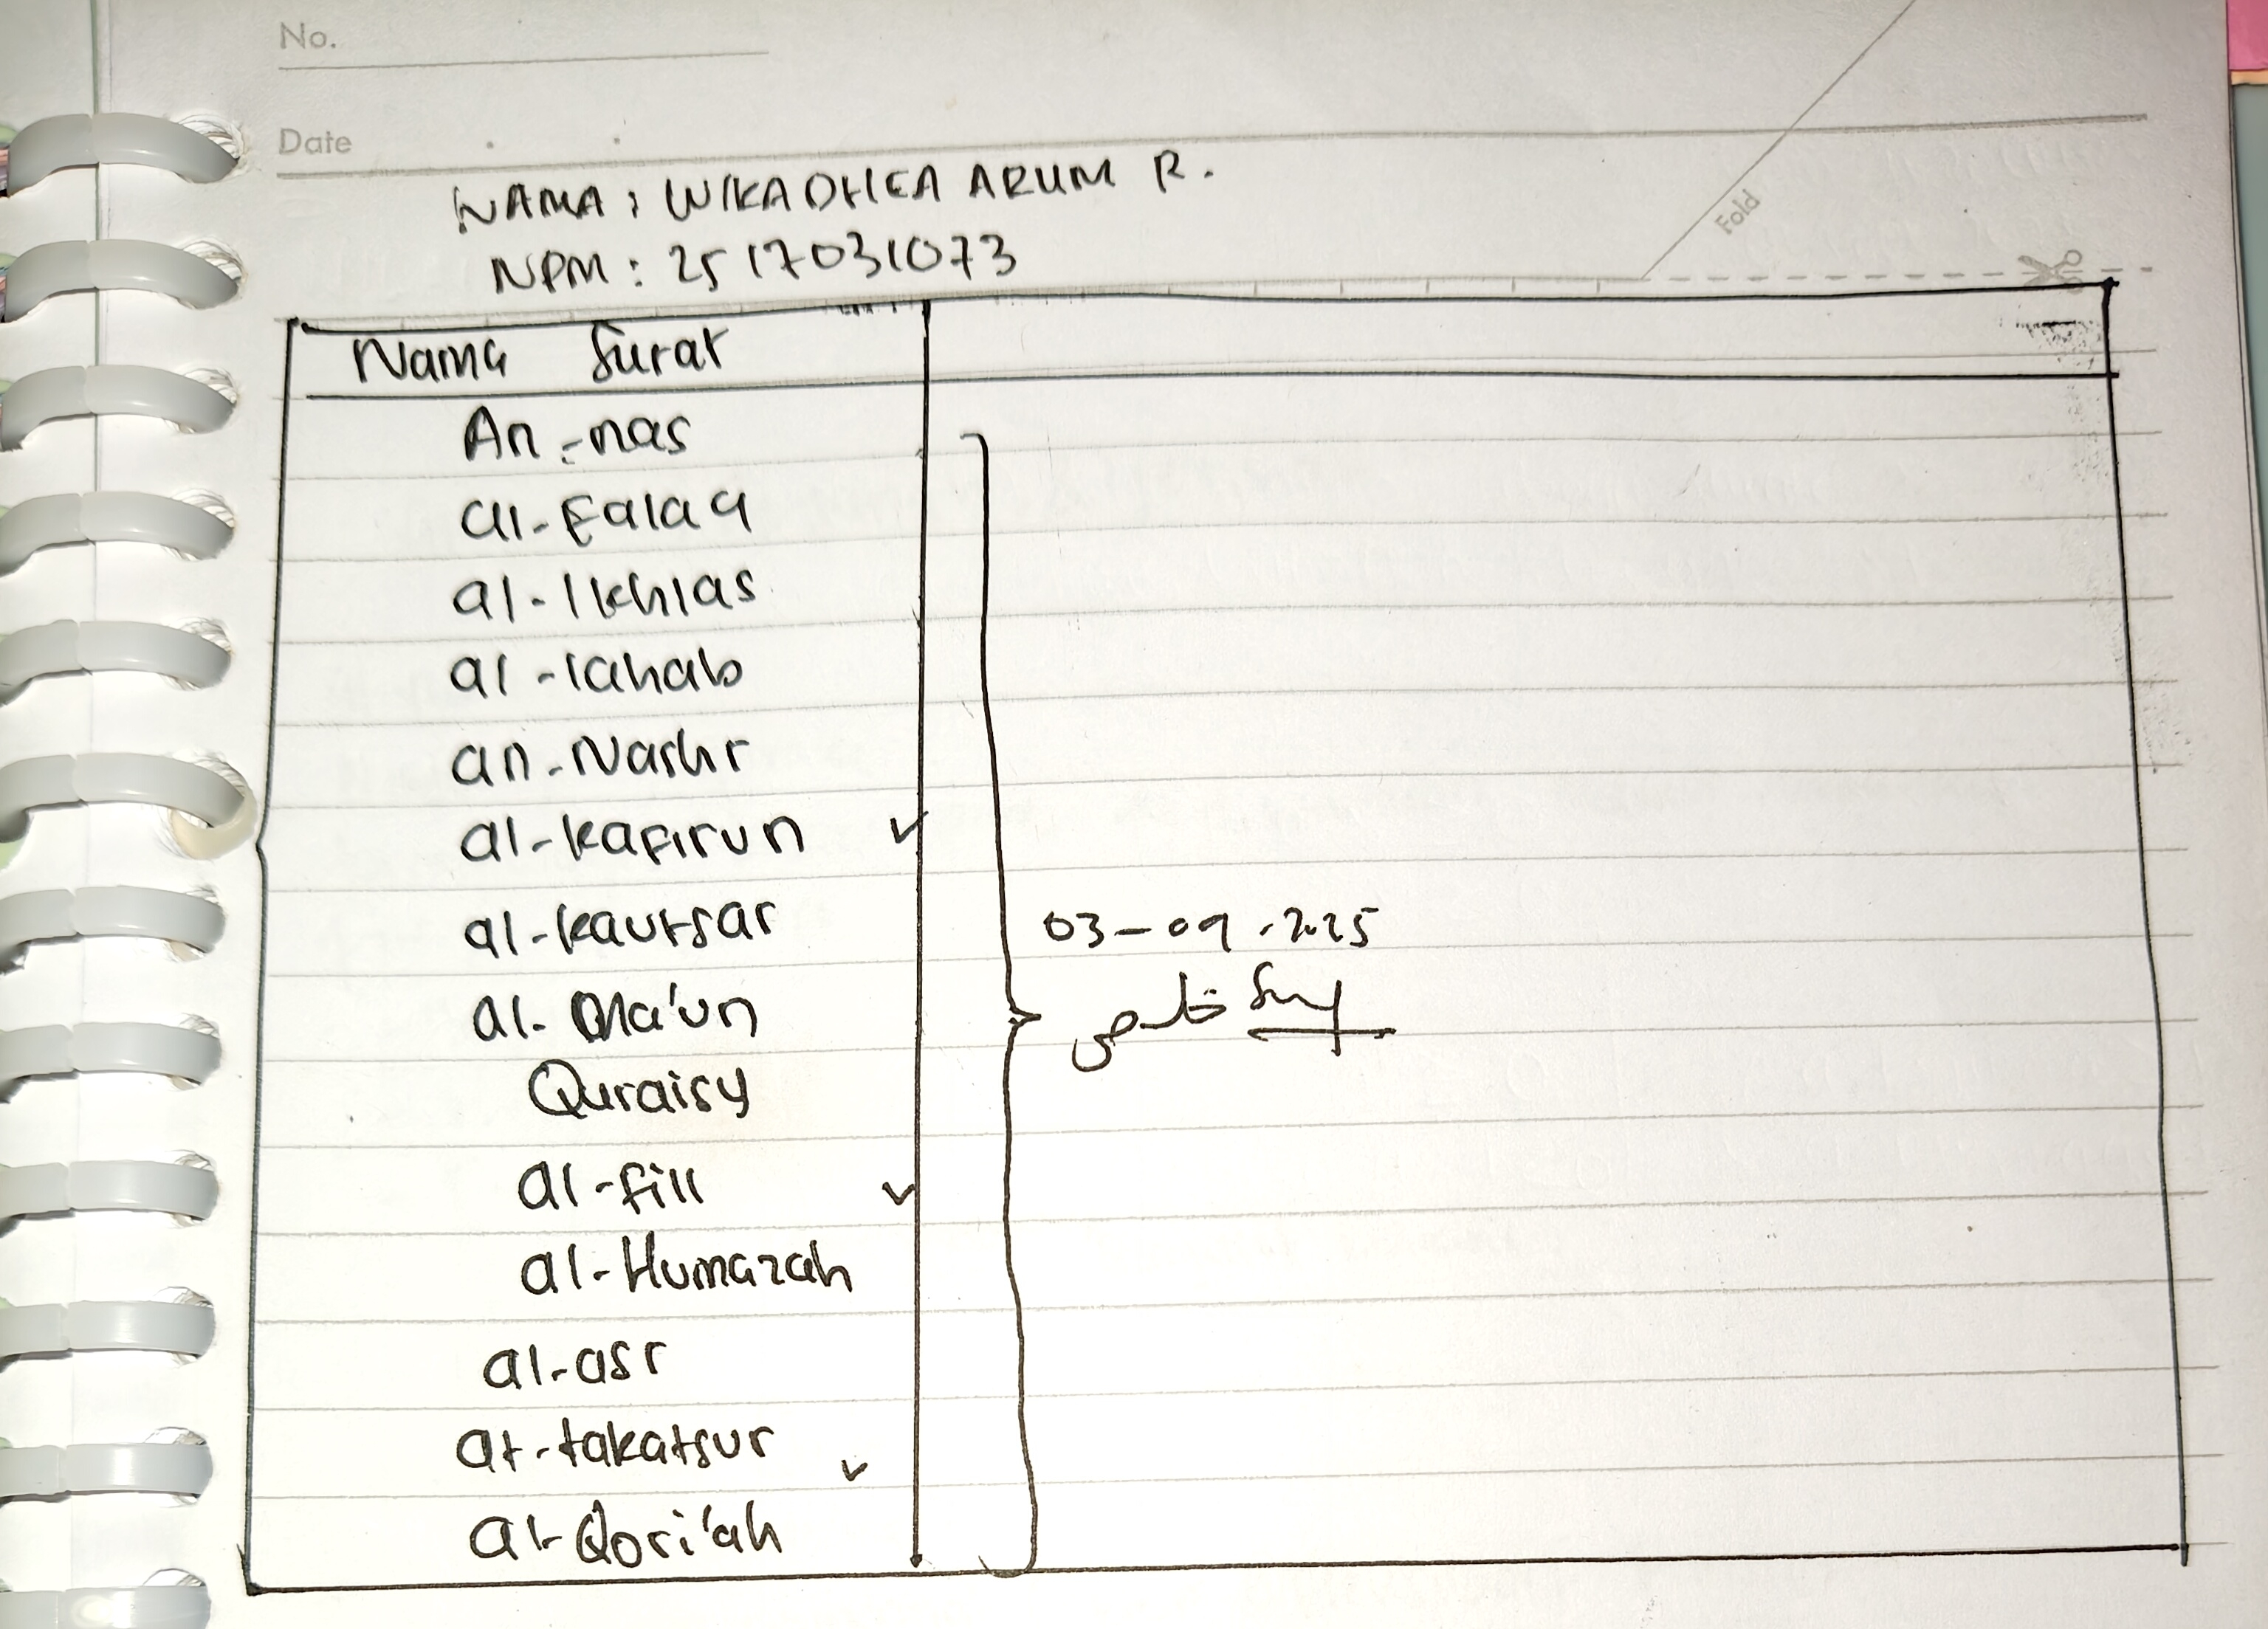 No.
Date
NAMA : WIKADHEA ARUM R.
NPM : 2517031073
Fold
Nama Surat
An-nas
al-Falaq
al-Ikhlas
al-lahab
an-Nashr
al-kafirun ✓
al-kautsar
03-09-2025
al-Ma'un
خلص
Quraisy
al-fill ✓
al-Humazah
al-asr
at-takatsur ✓
al-Qori'ah